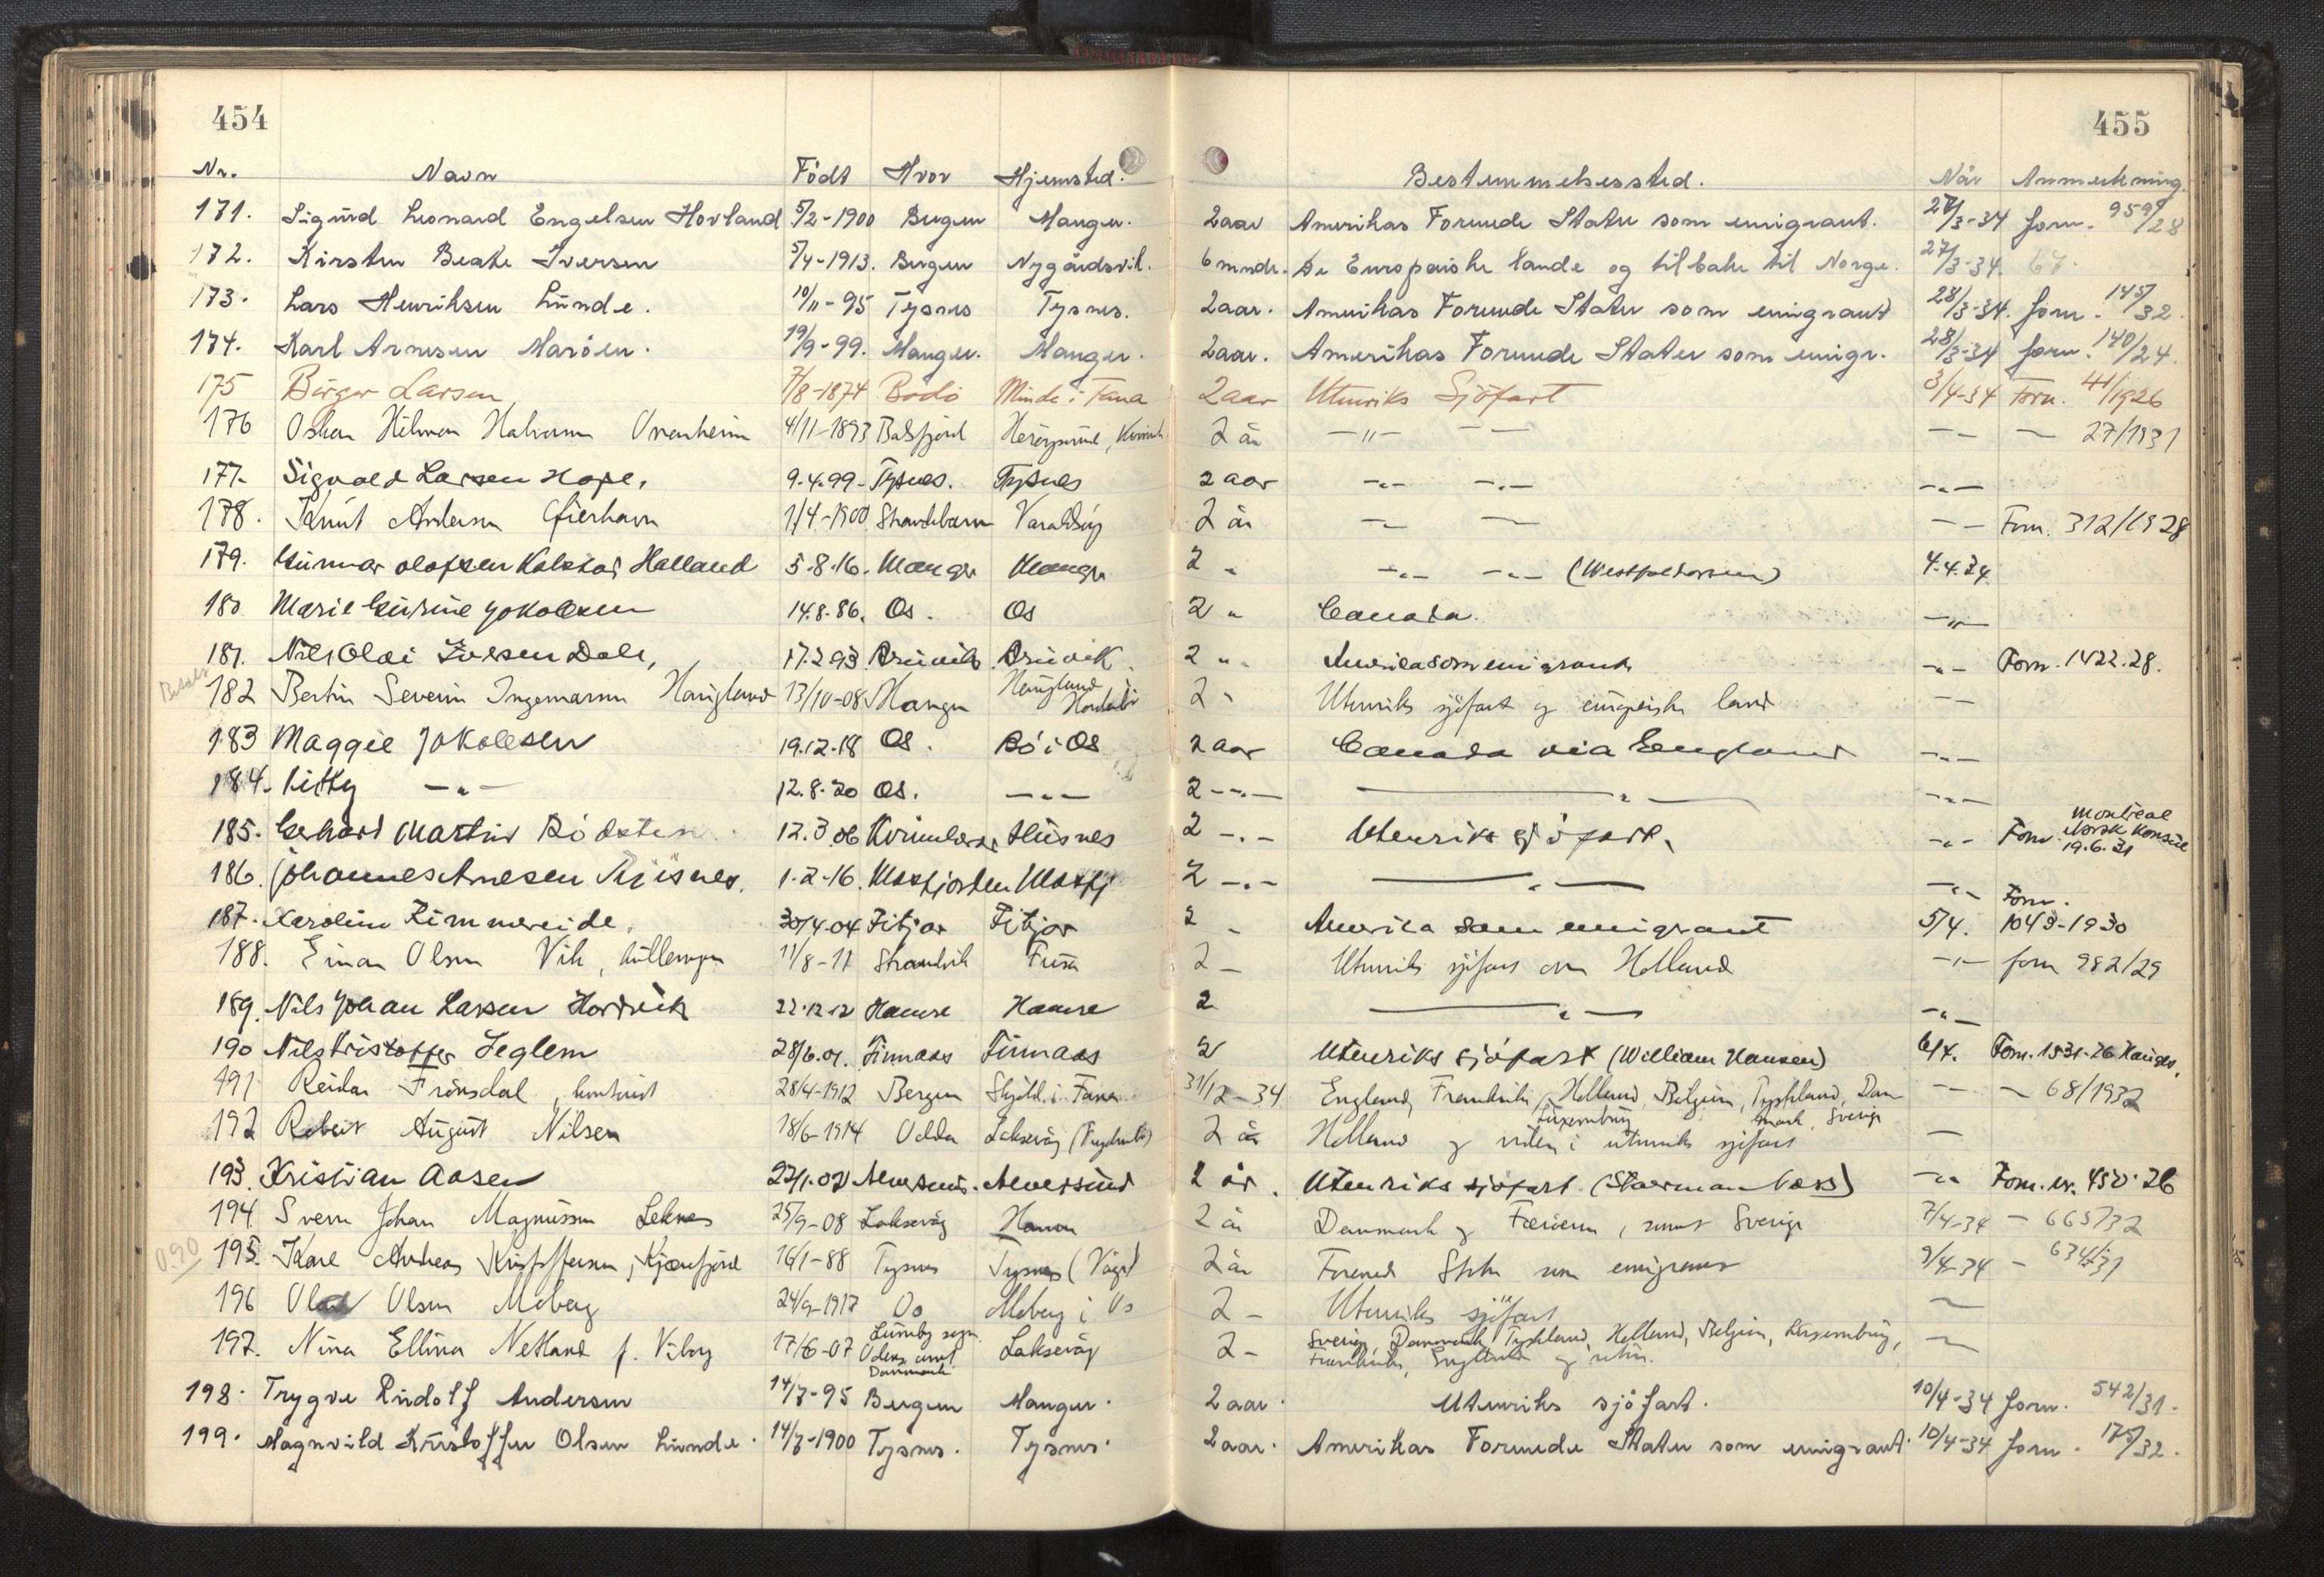 454
455
Nr. Navn Födt Hvor Hjemsted. Bestemmelsessted. Når Anmerkning
171. Sigurd Leonard Engelsen Hovland 5/2-1900 Bergen Manger. 2 aar Amerikas Forenede Stater som emigrant. 27/3-34 forn. 959/28
172. Kirsten Beate Iversen 5/4-1913. Bergen Nygårdsvik. 6 mndr. De Europeiske lande og tilbake til Norge. 27/3-34. 67.
173. Lars Henriksen Lünde. 10/11-95 Tysnes Tysnes. 2 aar. Amerikas Forenede Stater som emigrant 28/3-34. forn. 145/32.
174. Karl Arnesen Maröen. 19/9-99. Manger. Manger. 2 aar. Amerikas Forenede Stater som emigr. 28/3-34 forn. 140/24.
175 Birger Larsen 7/8-1874 Bodö Minde i Fana 2 aar Utenriks Sjöfart 3/4-34 Forn. 41/1926
176 Oskar Hilmar 4/11-1893 Balsfjord 2 år —"— — — — — 27/1931
177. Sigvald Larsen Hope, 9.4.99- Tysnes. Tysnes 2 aar —"— —"— —"—
178. Knüt Andersen Gjerhavn 1/4-1900 Strandebarm Varaldsöy 2 år — — — — Forn. 312/1928
179. Günnar Olafsen Kolstad Halland 5.8.16. Manger Manger 2 " —"— —"— (Westfaldarsen) 4.4.34
180 Marie Gürine Jokobsen 14.8.86. Os. Os 2 " Canada. —"—
181. Nils Olai Iversen Dale, 17.2.93 Brüvik Brüvik. 2 " Amerika som emigrant —"— Forn. 1422.28.
Betalt 182 Bertin Severin Ingemann Haugland 13/10-08 Manger Haugland Hordabö 2 " Utenriks sjöfart og europeiske land —
183 Maggie Jokobsen 19.12.18 Os. Bö i Os 2 aar Canada via England —"—
184. Kitty —"— 12.8.20 Os. —"— 2 —"— —"— —"—
185. Gerhard Martin Rödsten 12.3.06 Kvinnherad Hüsnes 2 —"— Utenriks sjöfart. —"— Forn. Montreal Norsk Konsül 19.6.31
186. Johannes Arnesen 1-2-16. Masfjorden Masfj 2 —"— —"— —"—
187. Karoline Rimmereide. 30/4-04 Fitjar Fitjar 2 " Amerika som emigrant 5/4. Forn. 1043-1930
188. Einar Olsen Vik, 11/8-11 Strandvik Füsa 2 — Utenriks sjöfart om Holland —"— forn 982/29
189. Nils Johan Larsen Hordvik 22.12.12 Hamre Hamre 2 —"— —"—
190 Nils Kristoffer Seglem 28/6.01. Finnaas Finnaas 2 Utenriks sjöfart (William Hansen) 6/4. Forn. 1531-26 Hauges.
191 Reidar Frönsdal, kontorist 28/4-1912 Bergen Skjold i Fana 31/12-34 England, Frankrike, Holland, Belgien, Tyskland, Dan — — 68/1932
Lüxembürg mark, Sverige
192 Robert Aügüst Nilsen 18/6-1914 Odda Laksevåg 2 år Holland og videre i utenriks sjöfart —
193. Kristian Aasen 23/1-02 Alversund. Alversünd 2 år. Utenriks sjöfart. —"— Forn. nr. 450.26
194. Svenn Johan Magnüssen Leknes 25/9-08 Laksevåg Hamre 2 år Danmark og Færöerne, samt Sverige 7/4-34 — 665/32
0.90 195. Karl Andreas Kristoffersen, Kjærefjord 16/1-88 Tysnes Tysnes (Våge) 2 år Forened Stater som emigrant 9/4-34 — 634/31
196 Olav Olsen Moberg 24/9-1917 Os Moberg i Os 2 — Utenriks sjöfart —
197. Nina Ellina Netland f. Viborg 17/6-07 Lümby sogn Odense amt Danmark Laksevåg 2 — Sverige, Danmark, Tyskland, Holland, Belgien, Lüxembürg, —
Frankrike, England og retür.
198. Trygve Rüdolf Andersen 14/7-95 Bergen Manger. 2 aar. Utenriks sjöfart. 10/4-34 forn. 542/31.
199. Magnvild Kristoffer Olsen Lünde. 14/7-1900 Tysnes. Tysnes. 2 aar. Amerikas Forenede Stater som emigrant. 10/4-34 forn. 175/32.